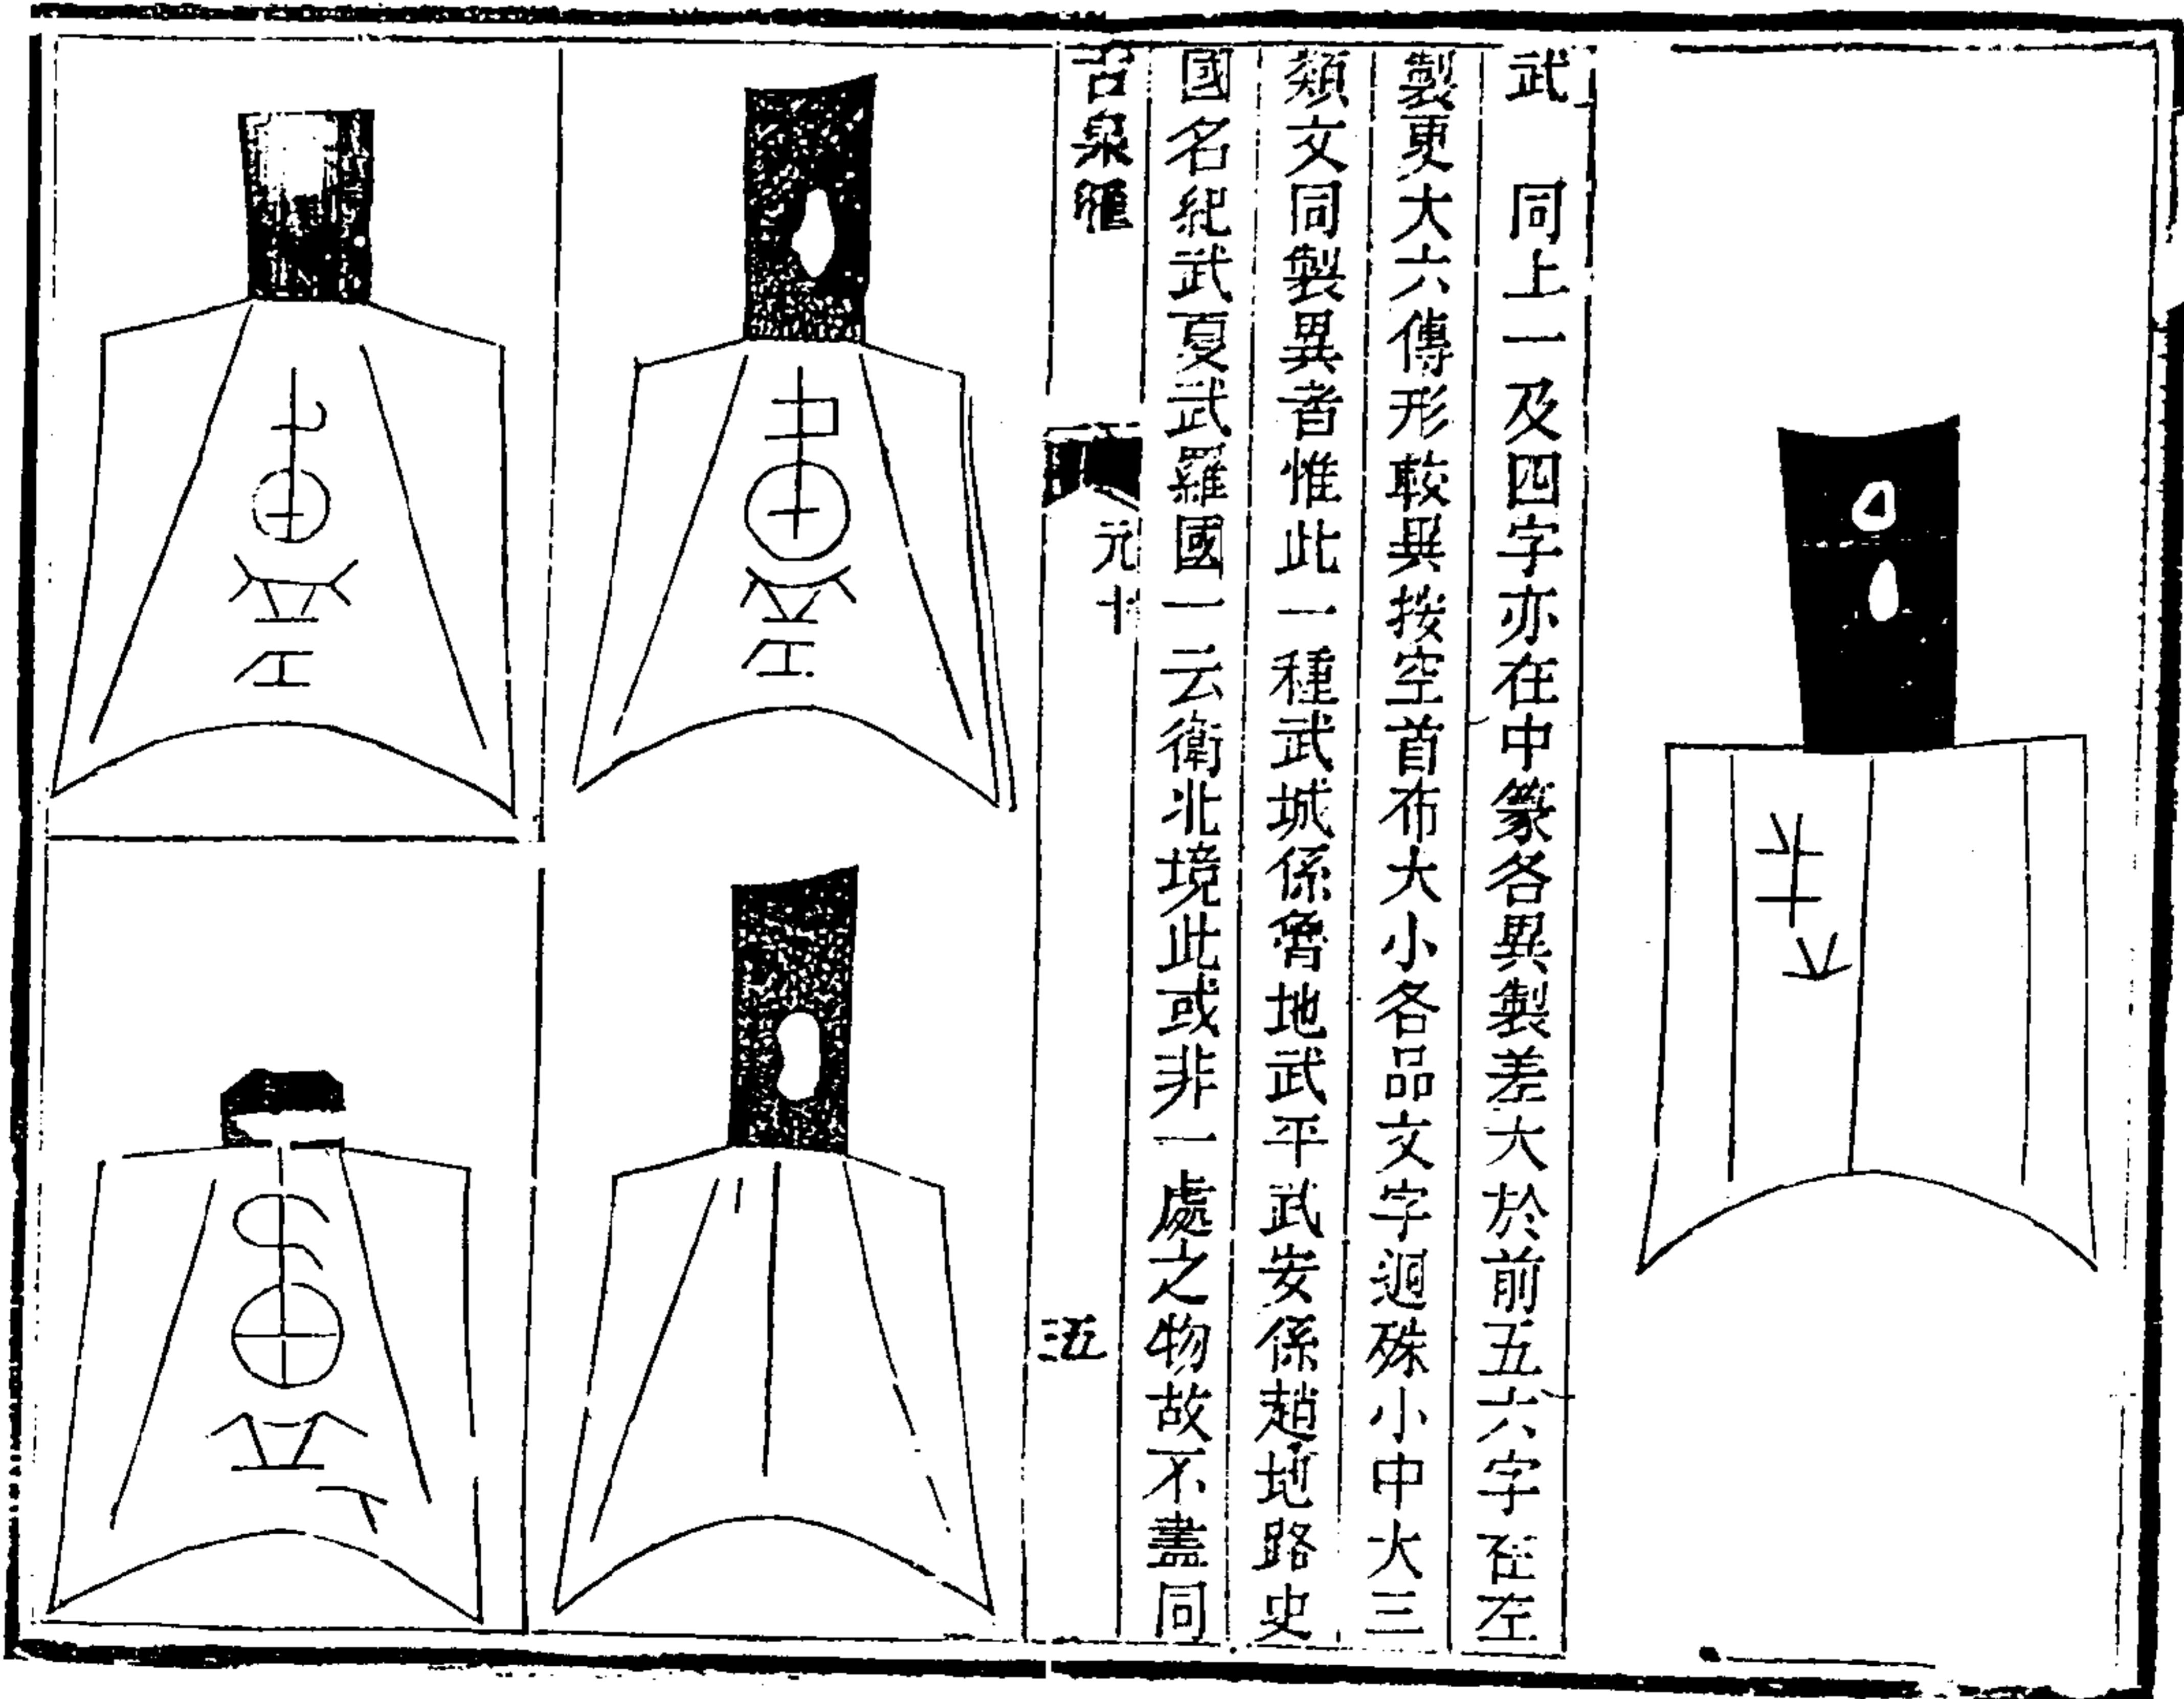 武　同上一及四字亦在中篆各異製差大於前五六字在左
製更大六傳形較異按空首布大小各品文字迥殊小中大三
類文同製異者惟此一種武城係魯地武平武安係趙地路史
國名紀武夏武羅國一云衛北境此或非一處之物故不盡同
古泉匯
元十
五